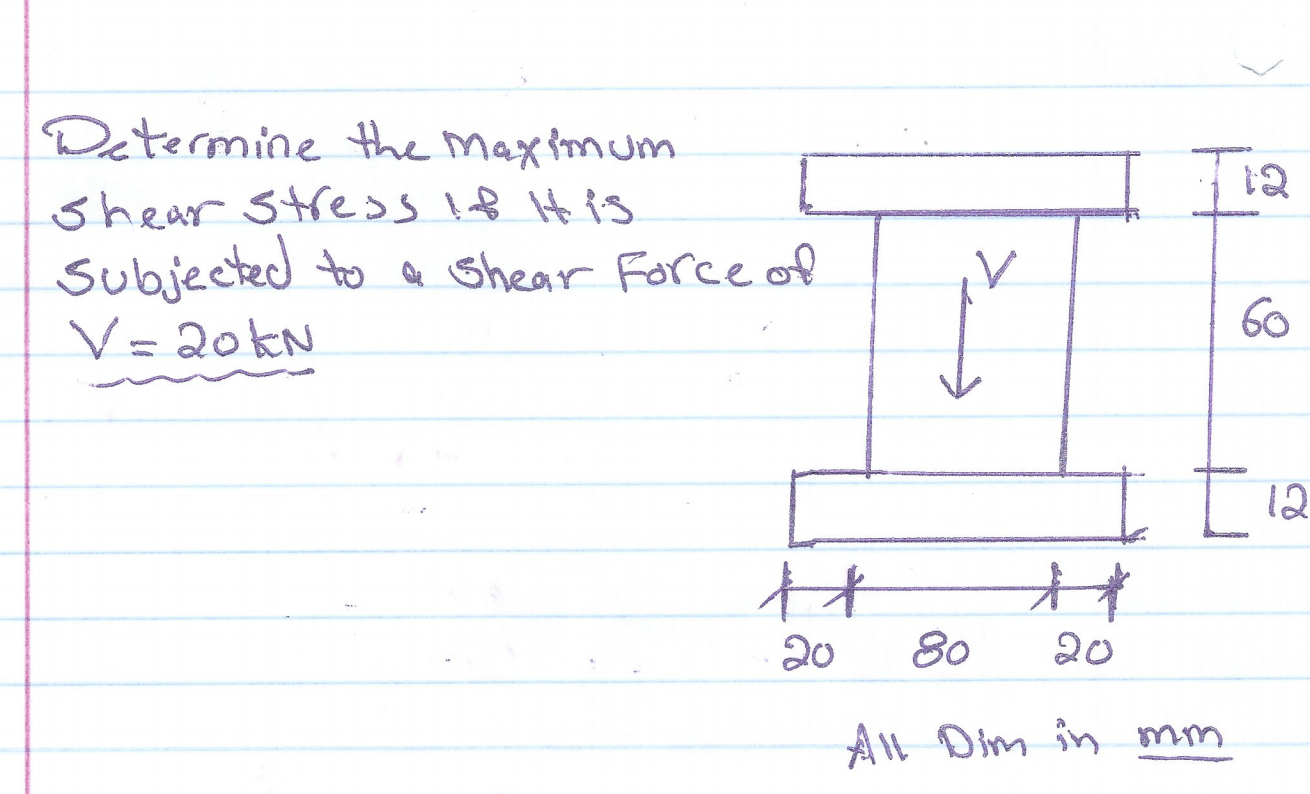 Determine the maximum
shear stress if it is
subjected to a shear Force of
V = 20 kN
V
12
60
12
20 80 20
All Dim in mm